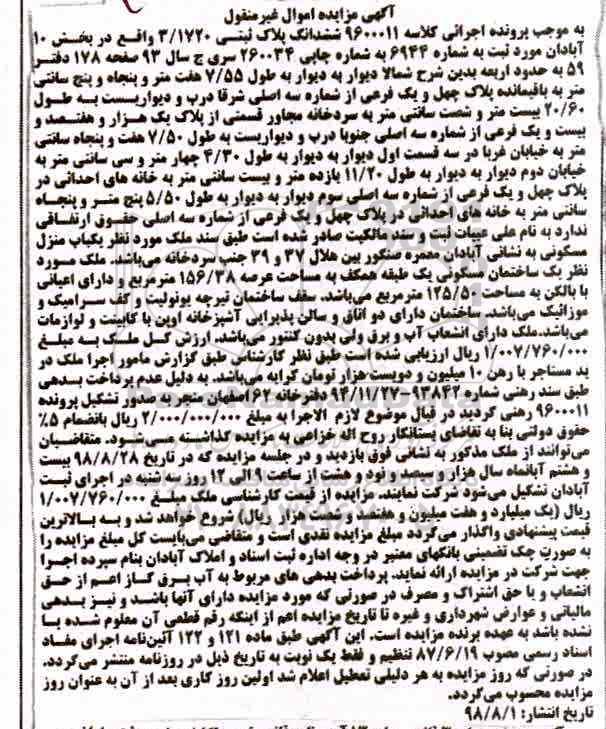 آگهی مزایده اموال غیرمنقول
به موجب پرونده اجرائی کلاسه ۹۶۰۰۰۱۱ ششدانگ پلاک ثبتی ۳/۱۷۲۰ واقع در بخش ۱۰
آبادان مورد ثبت به شماره ۶۹۴۴ به شماره چاپی ۲۶۰۰۳۴ سری ج سال ۹۳ صفحه ۱۷۸ دفتر
۵۹ به حدود اربعه بدین شرح شمالا دیوار به دیوار به طول ۷/۵۵ هفت متر و پنجاه و پنج سانتی
متر به باقیمانده پلاک چهل و یک فرعی از شماره سه اصلی شرقا درب و دیواریست به طول
۲۰/۶۰ بیست متر و شصت سانتی متر به سردخانه مجاور قسمتی از پلاک یک هزار و هفتصد و
بیست و یک فرعی از شماره سه اصلی جنوبا درب و دیواریست به طول ۷/۵۰ هفت و پنجاه سانتی
متر به خیابان غربا در سه قسمت اول دیوار به دیوار به طول ۴/۳۰ چهار متر و سی سانتی متر به
خیابان دوم دیوار به دیوار به طول ۱۱/۲۰ یازده متر و بیست سانتی متر به خانه های احداثی در
پلاک چهل و یک فرعی از شماره سه اصلی سوم دیوار به دیوار به طول ۵/۵۰ پنج متر و پنجاه
سانتی متر به خانه های احداثی در پلاک چهل و یک فرعی از شماره سه اصلی حقوق ارتفاقی
ندارد به نام علی عبیات ثبت و سند مالکیت صادر شده است طبق سند ملک مورد نظر یکباب منزل
مسکونی به نشانی آبادان معمره صنکور بین هلال ۳۷ و ۳۹ جنب سردخانه می‌باشد. ملک مورد
نظر یک ساختمان مسکونی یک طبقه همکف به مساحت عرصه ۱۵۶/۳۸ مترمربع و دارای اعیانی
با بالکن به مساحت ۱۲۵/۵۰ مترمربع می‌باشد. سقف ساختمان تیرچه یونولیت و کف سرامیک و
موزائیک می‌باشد. ساختمان دارای دو اتاق و سالن پذیرایی آشپزخانه اوپن با کابینت و لوازمات
می‌باشد.ملک دارای انشعاب آب و برق ولی بدون کنتور می‌باشد. ارزش کل ملک به مبلغ
۱/۰۰۷/۷۶۰/۰۰۰ ریال ارزیابی شده است طبق نظر کارشناسی طبق گزارش مامور اجرا ملک در
ید مستاجر با رهن ۱۰ میلیون و دویست هزار تومان کرایه می‌باشد. به دلیل عدم پرداخت بدهی
طبق سند رهنی شماره ۹۳۸۴۲-۹۴/۱۱/۲۷ دفترخانه ۶۲ اصفهان منجر به صدور تشکیل پرونده
۹۶۰۰۰۱۱ رهنی گردید در قبال موضوع لازم الاجرا به مبلغ ۲/۰۰۰/۰۰۰/۰۰۰ ریال بانضمام ۵٪
حقوق دولتی بنا به تقاضای بستانکار روح اله خزاعی به مزایده گذاشته می‌شود. متقاضیان
می‌توانند از ملک مذکور به نشانی فوق بازدید و در جلسه مزایده که در تاریخ ۹۸/۸/۲۸ بیست
و هشتم آبانماه سال هزار و سیصد و نود و هشت از ساعت ۹ الی ۱۲ روز سه شنبه در اجرای ثبت
آبادان تشکیل می‌شود شرکت نمایند. مزایده از قیمت کارشناسی ملک مبلغ ۱/۰۰۷/۷۶۰/۰۰۰
ریال (یک میلیارد و هفت میلیون و هفتصد و شصت هزار ریال) شروع خواهد شد و به بالاترین
قیمت پیشنهادی واگذار می‌گردد مبلغ مزایده نقدی است و متقاضی می‌بایست کل مبلغ مزایده را
به صورت چک تضمینی بانکهای معتبر در وجه اداره ثبت اسناد و املاک آبادان بنام سپرده اجرا
جهت شرکت در مزایده ارائه نماید. پرداخت بدهی های مربوط به آب برق گاز اعم از حق
انشعاب و یا حق اشتراک و مصرف در صورتی که مورد مزایده دارای آنها باشد و نیز بدهی
مالیاتی و عوارض شهرداری و غیره تا تاریخ مزایده اعم از اینکه رقم قطعی آن معلوم شده یا
نشده باشد به عهده برنده مزایده است. این آگهی طبق ماده ۱۲۱ و ۱۲۲ آئین‌نامه اجرای مفاد
اسناد رسمی مصوب ۸۷/۶/۱۹ تنظیم و فقط یک نوبت به تاریخ ذیل در روزنامه منتشر می‌گردد.
در صورتی که روز مزایده به هر دلیلی تعطیل اعلام شد اولین روز کاری بعد از آن به عنوان روز
مزایده محسوب می‌گردد.
تاریخ انتشار: ۹۸/۸/۱